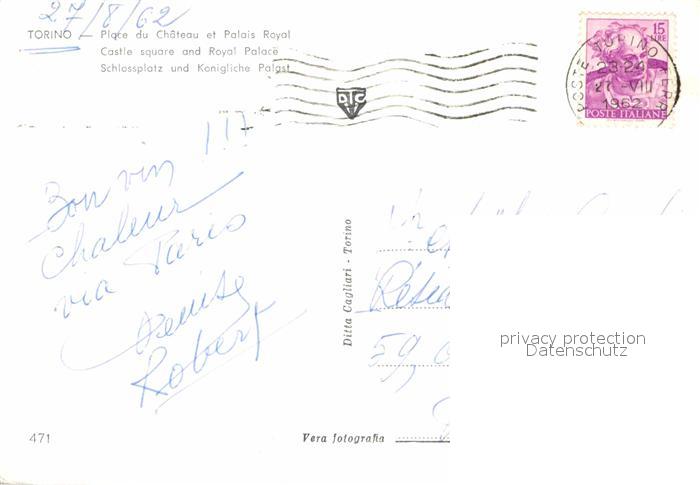 27/8/62
TORINO – Place du Château et Palais Royal
Castle square and Royal Palace
Schlossplatz und Konigliche Palast
15
LIRE
POSTE ITALIANE
TORINO
POSTE
23-24
27 -VIII
1962
DTC
!!!
Bon vin
chaleur
via Paris
Denise
Robert
Ditta Cagliari - Torino
59,
privacy protection
Datenschutz
471
Vera fotografia